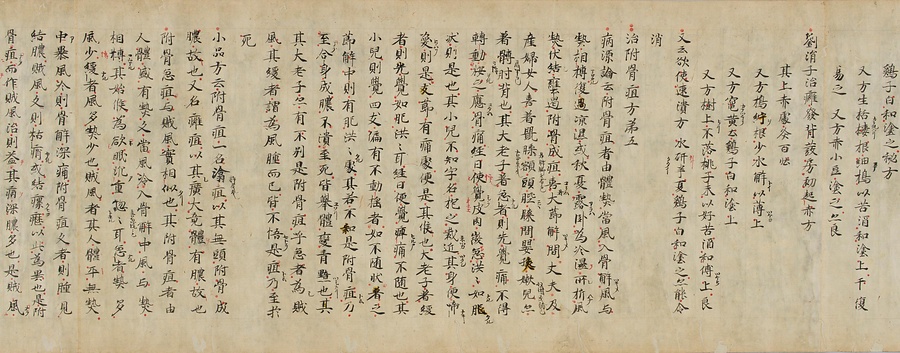 鷄子白和塗之秘方
又方生栝樓根細搗以苦酒和塗上干復
易之 又方赤小豆塗之亦良
劉涓子治癰發背發房初起赤方
其上赤處灸百壯
又方搗蒴根少水解以薄上
又方竃黄土鷄子白和塗上
又方樹上不落桃子末以好苦酒和傅上良
又云欲使速潰方 水研半夏鷄子白和塗之亦能令
消
治附骨疽方第五
病源論云附骨疽者由體熱當風入骨解風与
熱相搏復遇凉濕或秋夏露卧為冷濕所折風
熱伏結壅遏附骨成疽喜大節解間丈夫及
産婦女人喜着髀髂頭胜膝間嬰孩嫩兒亦
著髆肘背也其大老子著急者則先覺痛不得
轉動挼之應骨痛經日便覺皮肉微急洪洪如肥
状則是也其小兒不知字名抱之纔近其身便啼
喚則是支節有痛處便是其候也大老子著緩
者則先覺如肥洪洪耳經日便覺痺痛不随也其
小兒則覺四支偏有不動搖者如不随状者之
節解中則有肥洪處其若不知是附骨疽乃
至合身成膿不潰至死皆舉體變青黯也其
其大老子亦有不別是附骨疽乎急者為賊
風其緩者謂為風腫而已皆不悟是疽乃至於
死
小品方云附骨疽一名疽以其無頭附骨成
膿故也又名癰疽以其廣大竟體有膿故也
附骨急疽与賊風實相似也其附骨疽者由
人體盛有熱久當風冷入骨解中風与熱
相搏其始候為欲眠沉重惚惚耳急者熱多
風少緩者風多熱少也賊風者其人體平無熱
中暴風冷則骨解深痛附骨疽久者則腫見
結膿賊風久則枯痟或結瘰癧以此為異也是附
骨疽而作賊風治則益其痛深膿多也是賊風